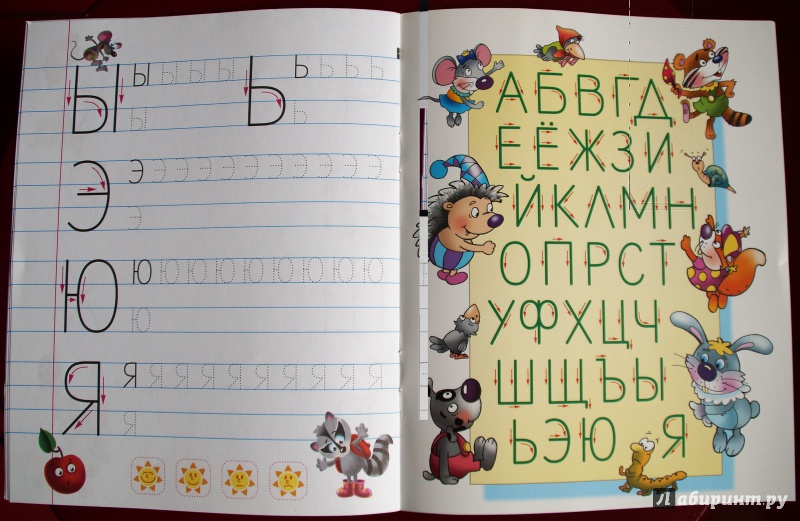 Ы Ы Ы Ы Ы Ь Ь Ь Ь Ь
Ы Ь
Э Э Э Э Э Э Э Э Э Э Э Э
Э
Ю Ю Ю Ю Ю Ю Ю Ю Ю Ю
Ю
Я Я Я Я Я Я Я Я Я Я Я Я
Я
А Б В Г Д
Е Ё Ж З И
Й К Л М Н
О П Р С Т
У Ф Х Ц Ч
Ш Щ Ъ Ы
Ь Э Ю Я
Лабиринт.ру